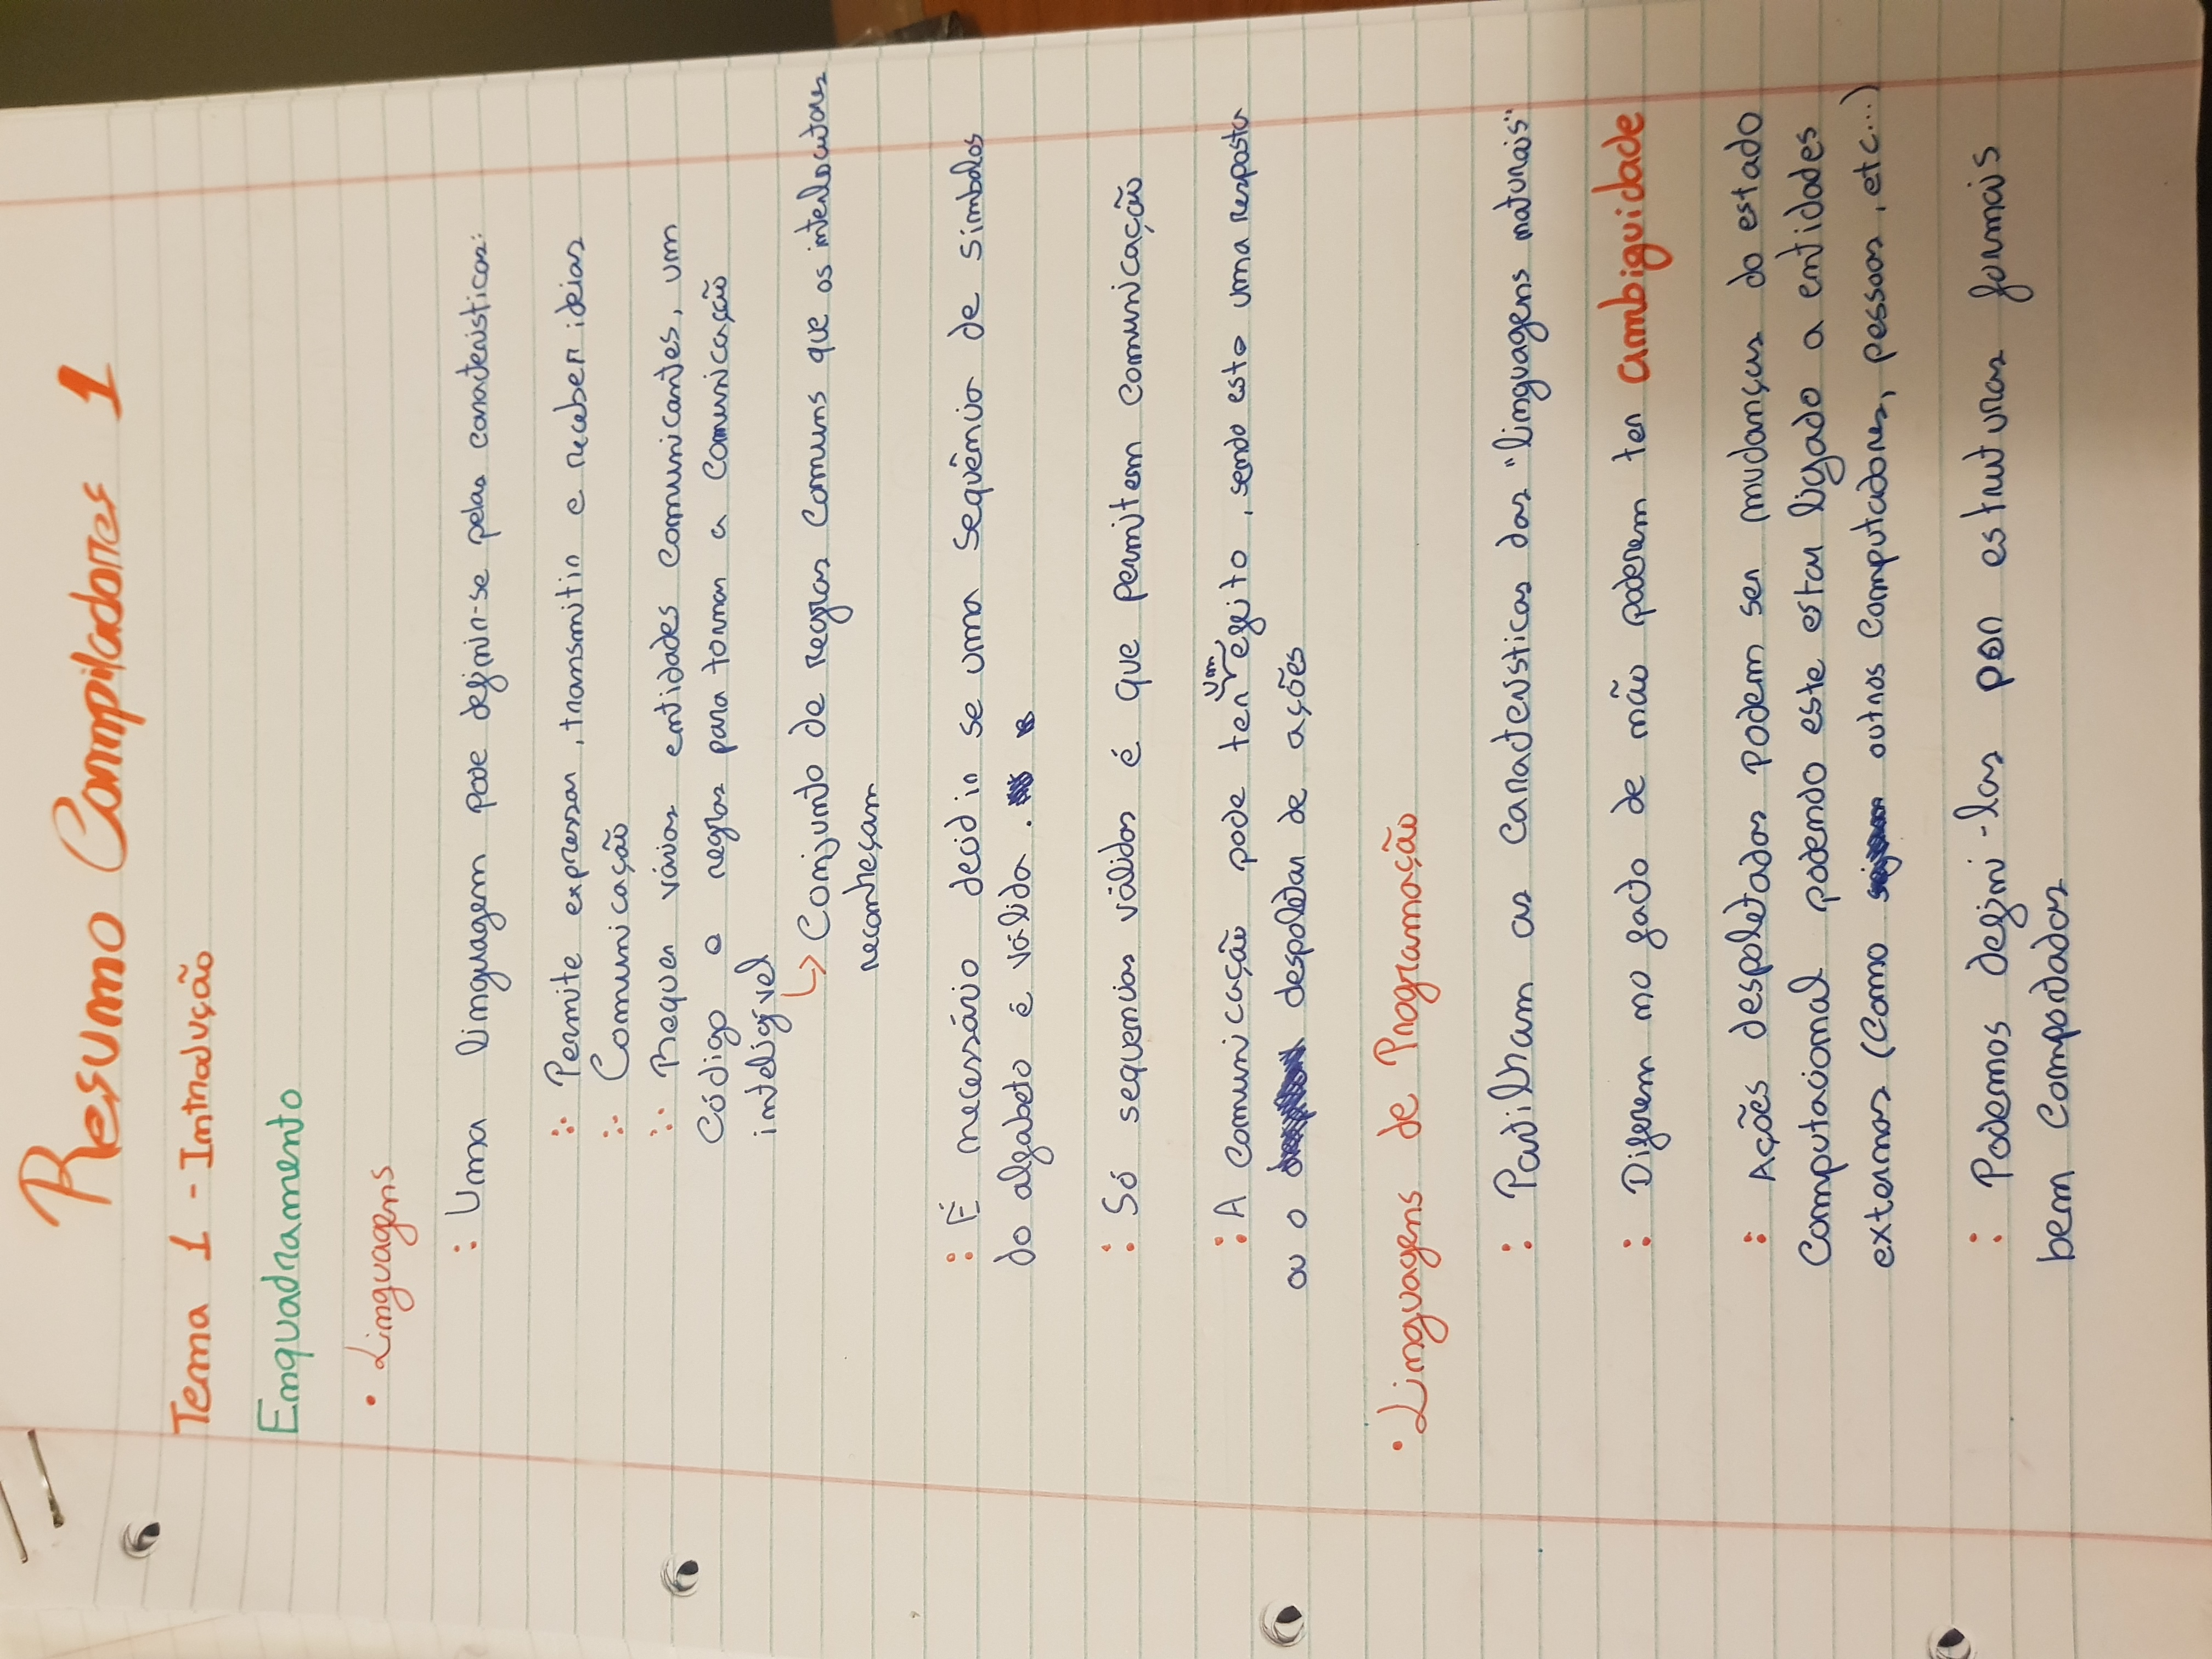 Resumo Compiladores 1
Tema 1 - Introdução
Enquadramento
• Linguagens
: Uma linguagem pode definir-se pelas características:
:· Permite expressar, transmitir e receber ideias
:· Comunicação
:· Requer várias entidades comunicantes, um
código e regras para tornar a comunicação
inteligível
↳ Conjunto de regras comuns que os interlocutores
reconheçam
: É necessário decidir se uma sequência de simbolos
do alfabeto é válida.
: Só sequencias válidas é que permitem comunicação
: A comunicação pode ter um efeito, sendo este uma resposta
ou o despoletar de ações
• Linguagens de Programação
: Partilham as características das "linguagens naturais"
: Diferem no facto de não poderem ter ambiguidade
: Ações despoletadas podem ser mudanças do estado
computacional podendo este estar ligado a entidades
externas (como outros computadores, pessoas, etc...)
: Podemos defini-las por estruturas formais
bem comportadas